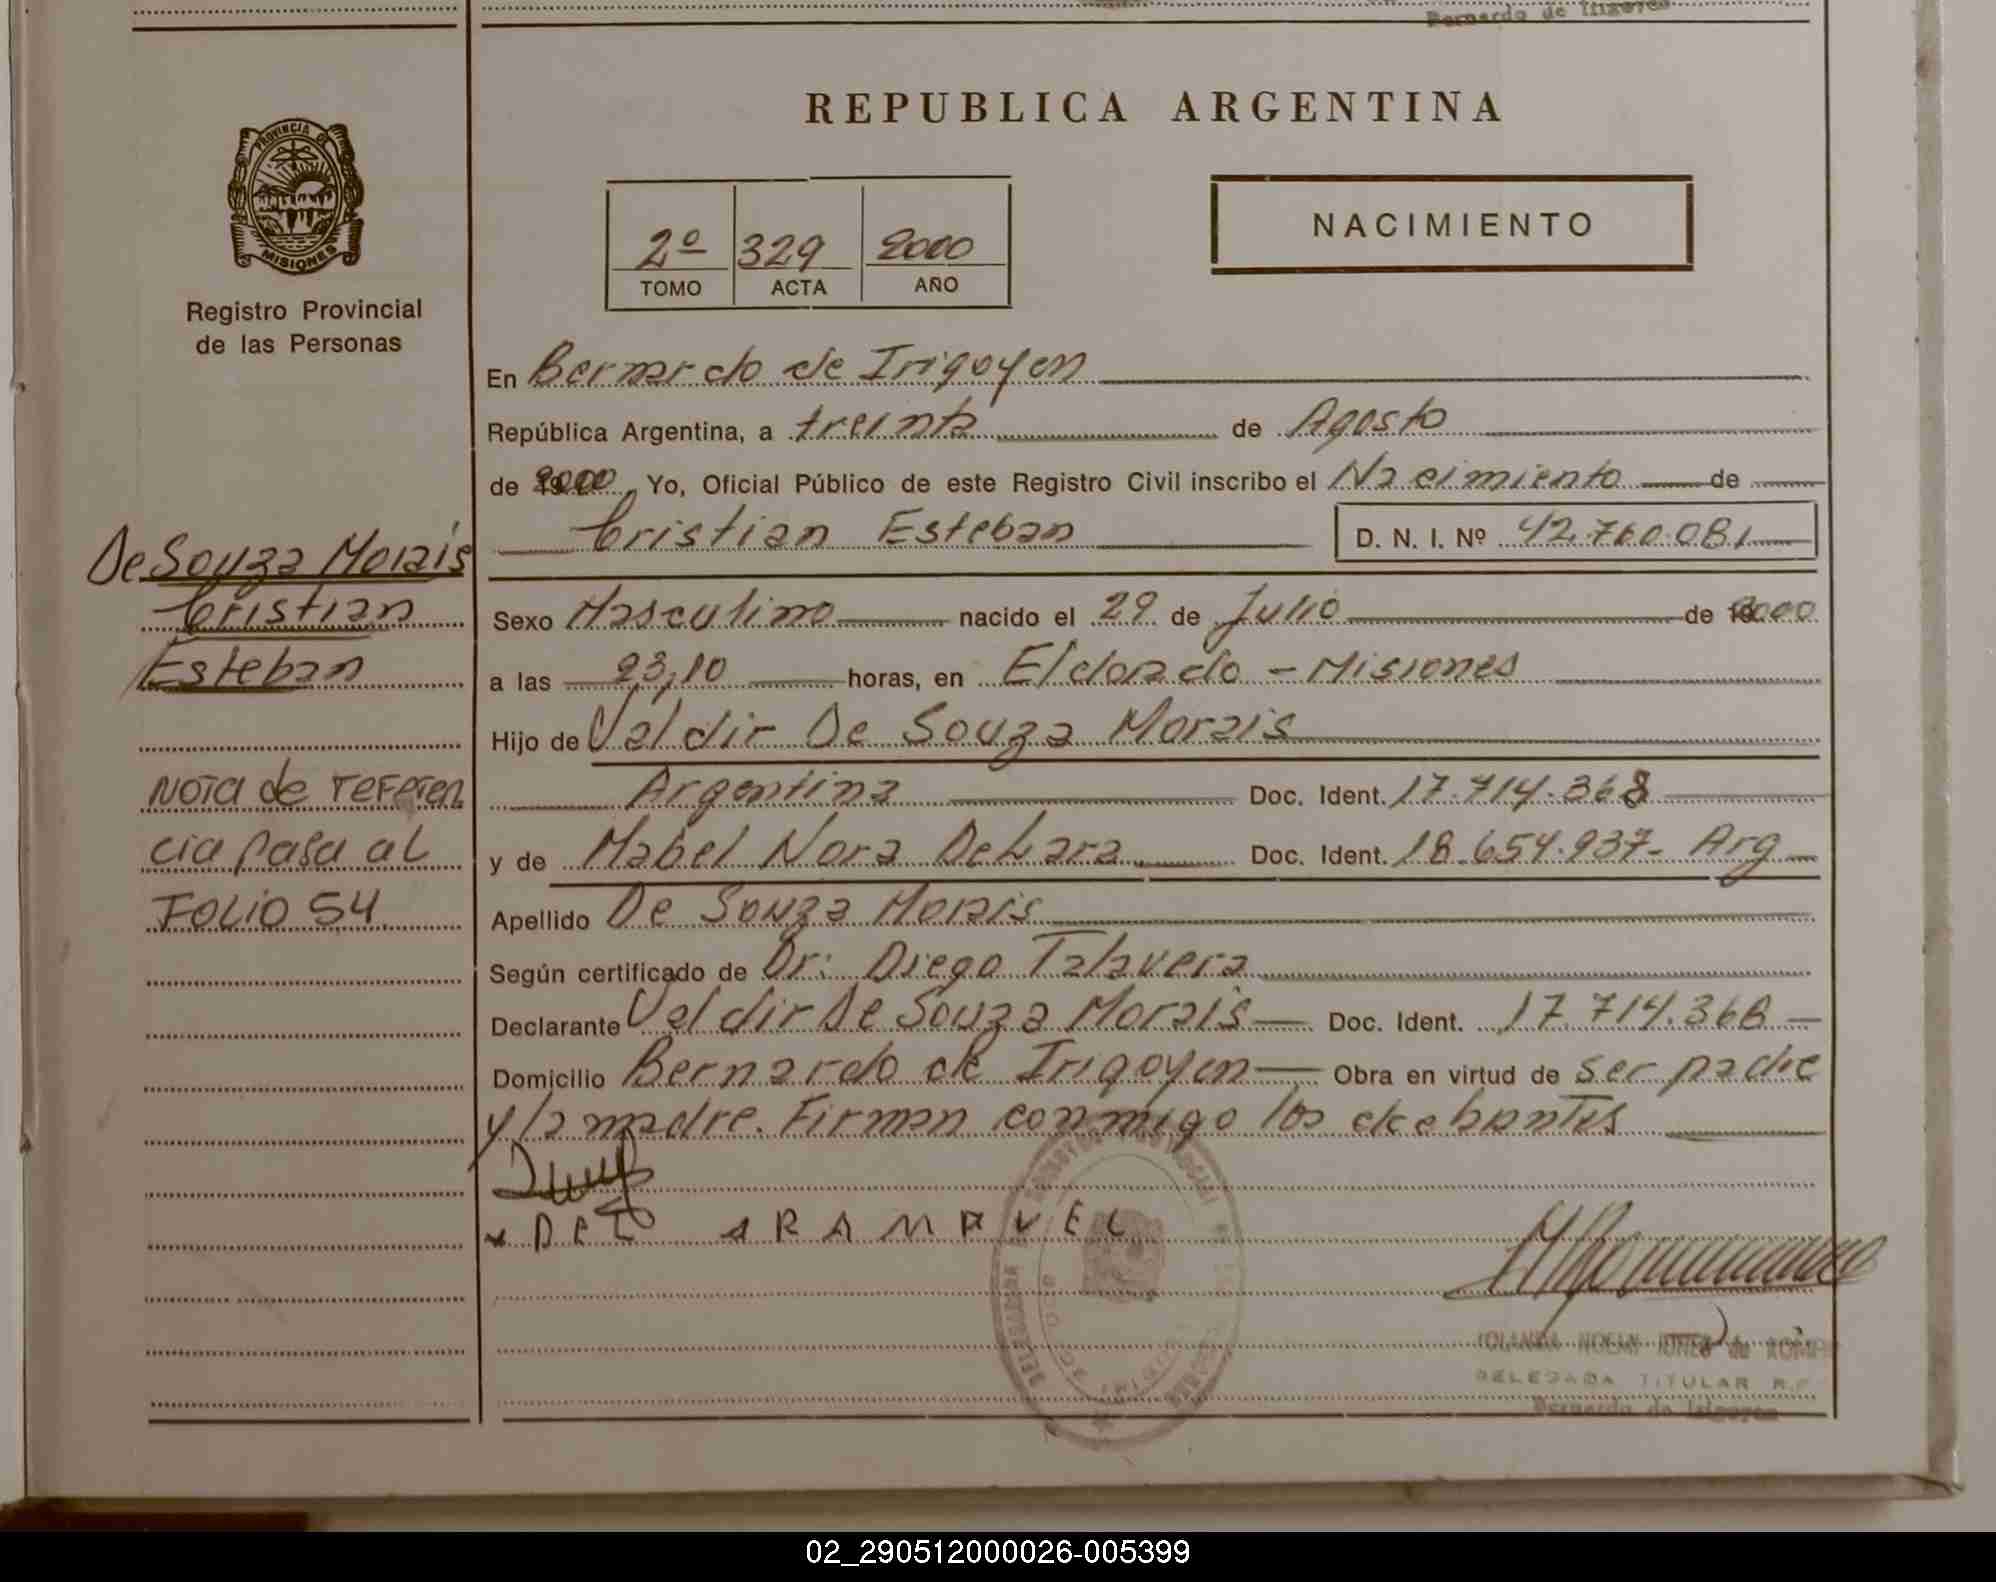 Bernardo de Irigoyen
REPUBLICA ARGENTINA
PROVINCIA DE
MISIONES
Registro Provincial
de las Personas
2º 329 2000
TOMO ACTA AÑO
NACIMIENTO
En Bernardo de Irigoyen
República Argentina, a treinta de Agosto
de 2000 Yo, Oficial Público de este Registro Civil inscribo el Nacimiento de
Cristian Esteban D. N. I. Nº 42.760.081
De Souza Morais
Cristian
Esteban
Sexo Masculino nacido el 29 de Julio de 2000
a las 23,10 horas, en Eldorado - Misiones
Hijo de Valdir De Souza Morais
Argentina Doc. Ident. 17.714.368
y de Mabel Nora DeLara Doc. Ident. 18.654.937- Arg
Nota de referen
cia pasa al
FOLIO 54
Apellido De Souza Morais
Según certificado de Dr: Diego Talavera
Declarante Valdir De Souza Morais Doc. Ident. 17.714.368
Domicilio Bernardo de Irigoyen Obra en virtud de ser padre
y la madre. Firman conmigo los
DELEGADA TITULAR R.P.
Bernardo de Irigoyen
02_290512000026-005399